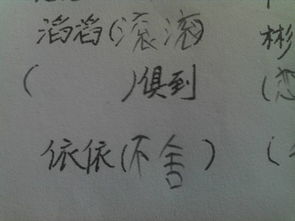 滔滔(滚滚) 彬
(    )俱到 (恋
依依(不舍) (